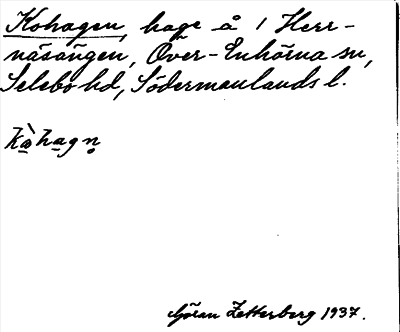 Kohagen, hage å 1 Herr-
näsängen, Över-Enhörna sn,
Selebo hd, Södermanlands l.
kòhagn
Göran Zetterberg 1937.